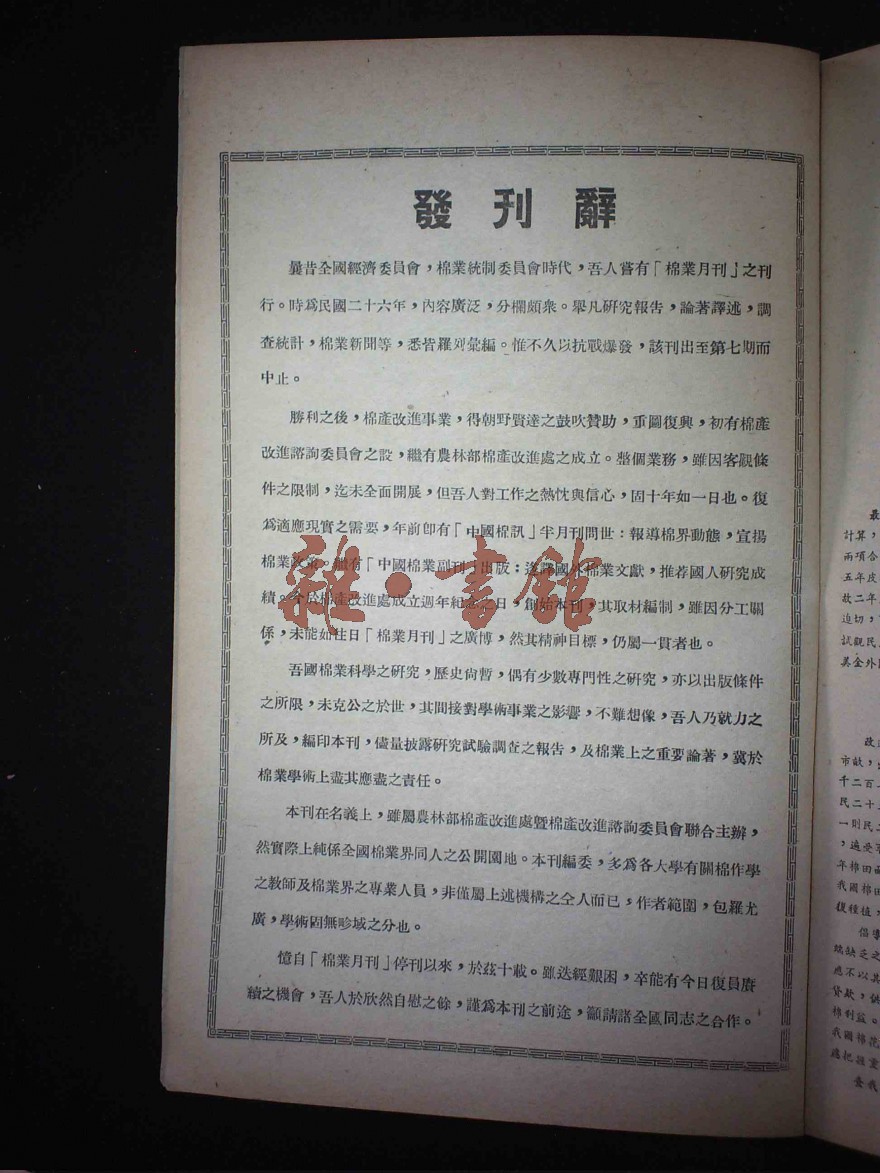 發刊辭
曩昔全國經濟委員會，棉業統制委員會時代，吾人嘗有「棉業月刊」之刊
行。時爲民國二十六年，內容廣泛，分欄頗衆。舉凡研究報告，論著譯述，調
查統計，棉業新聞等，悉皆羅列彙編。惟不久以抗戰爆發，該刊出至第七期而
中止。
勝利之後，棉產改進事業，得朝野賢達之鼓吹贊助，重圖復興，初有棉產
改進諮詢委員會之設，繼有農林部棉產改進處之成立。整個業務，雖因客觀條
件之限制，迄未全面開展，但吾人對工作之熱忱與信心，固十年如一日也。復
爲適應現實之需要，年前卽有「中國棉訊」半月刊問世：報導棉界動態，宣揚
棉業政策。繼有「中國棉業副刊」出版：迻譯國外棉業文獻，推荐國人研究成
績。今於棉產改進處成立週年紀念之日，創始本刊，其取材編制，雖因分工關
係，未能如往日「棉業月刊」之廣博，然其精神目標，仍屬一貫者也。
吾國棉業科學之研究，歷史尙暫，偶有少數專門性之研究，亦以出版條件
之所限，未克公之於世，其間接對學術事業之影響，不難想像，吾人乃就力之
所及，編印本刊，儘量披露研究試驗調查之報告，及棉業上之重要論著，冀於
棉業學術上盡其應盡之責任。
本刊在名義上，雖屬農林部棉產改進處暨棉產改進諮詢委員會聯合主辦，
然實際上純係全國棉業界同人之公開園地。本刊編委，多爲各大學有關棉作學
之教師及棉業界之專業人員，非僅屬上述機構之仝人而已，作者範圍，包羅尤
廣，學術固無畛域之分也。
憶自「棉業月刊」停刊以來，於茲十載。雖迭經艱困，卒能有今日復員賡
續之機會，吾人於欣然自慰之餘，謹爲本刊之前途，籲請諸全國同志之合作。
雜·書館
最
計算，
兩項合
五年皮
故二年
迫切，
試觀民
美金外
改
市畝，
千二百
民二十
一則民
，遍受
年棉田
我國棉田
復種植，
倡導
端缺乏之
應不以其
貸款，
棉利益。
我國棉花